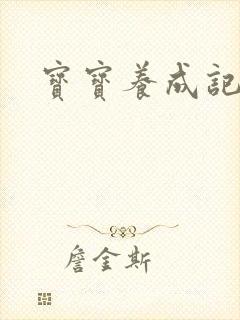 寶寶養成記
詹金斯